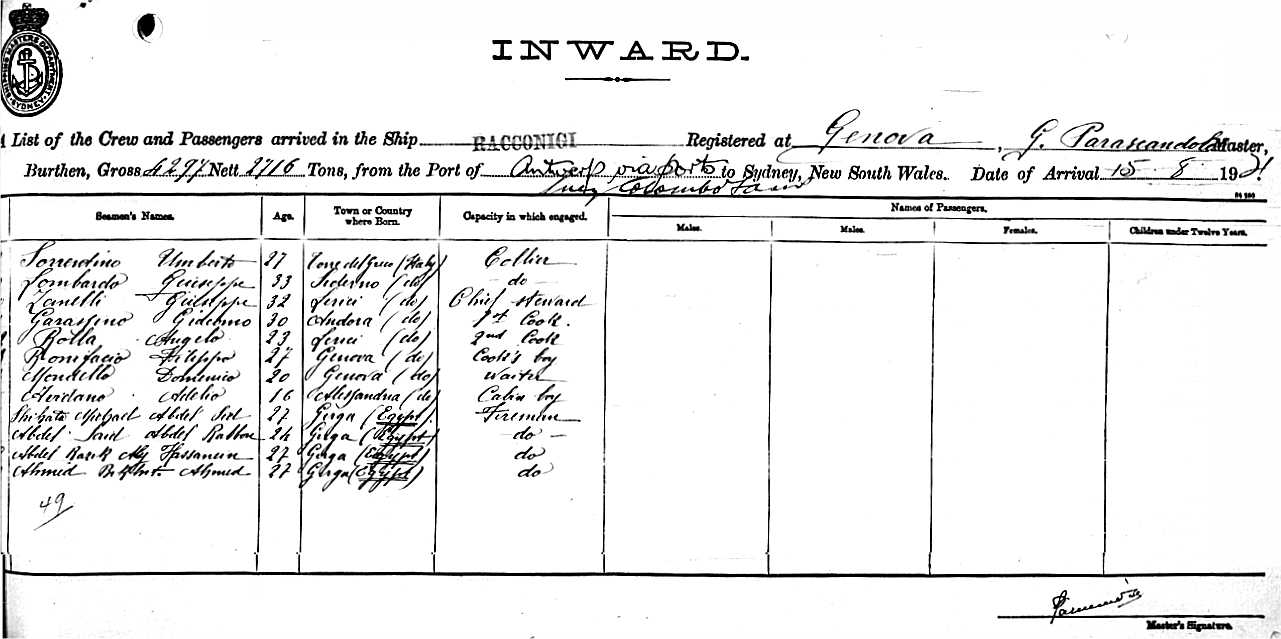 SHIPPING MASTERS DEPARTMENT
SYDNEY
INWARD.
List of the Crew and Passengers arrived in the Ship RACCONIGI Registered at Genova, G. Parascandola Master,
Burthen, Gross 4297 Nett 2716 Tons, from the Port of Antwerp via ports to Sydney, New South Wales. Date of Arrival 15 8 19
Colombo
Seamen's Names. Age. Town or Country where Born. Capacity in which engaged. Names of Passengers.
Males. Males. Females. Children under Twelve Years.
Sorrentino Umberto 27 Torre del Greco (Italy) Collier
Lombardo Giuseppe 33 Siderno (do) do
Zanelli Giuseppe 32 Lerici (do) Chief steward
Garassino Giacomo 30 Andora (do) 1st Cook.
Rolla Angelo 23 Lerici (do) 2nd Cook
Bonifacio Filippo 27 Genova (do) Cook's boy
Mondello Domenico 20 Genova (do) waiter
Adelio 16 Alessandria (do) Cabin boy
Abdel 27 Girga (Egypt). Fireman
Abdel Said Abdel 24 Girga (Egypt) - do -
Abdel Razek Aly Hassanein 27 Girga (Egypt) do
Ahmed Ahmed 27 Girga (Egypt) do
49
Master's Signature.